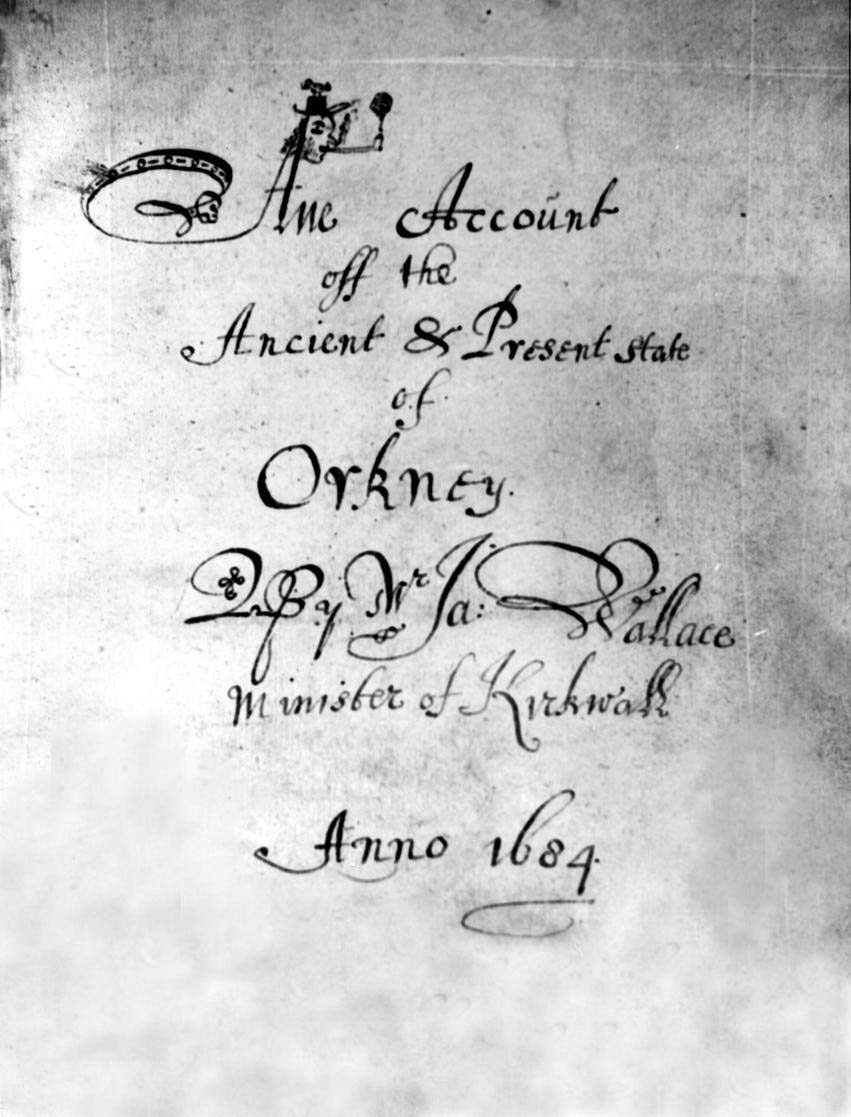 Ane Account
off the
Ancient & Present state
of
Orkney.
By Mr Ja: Wallace
Minister of Kirkwall
Anno 1684.